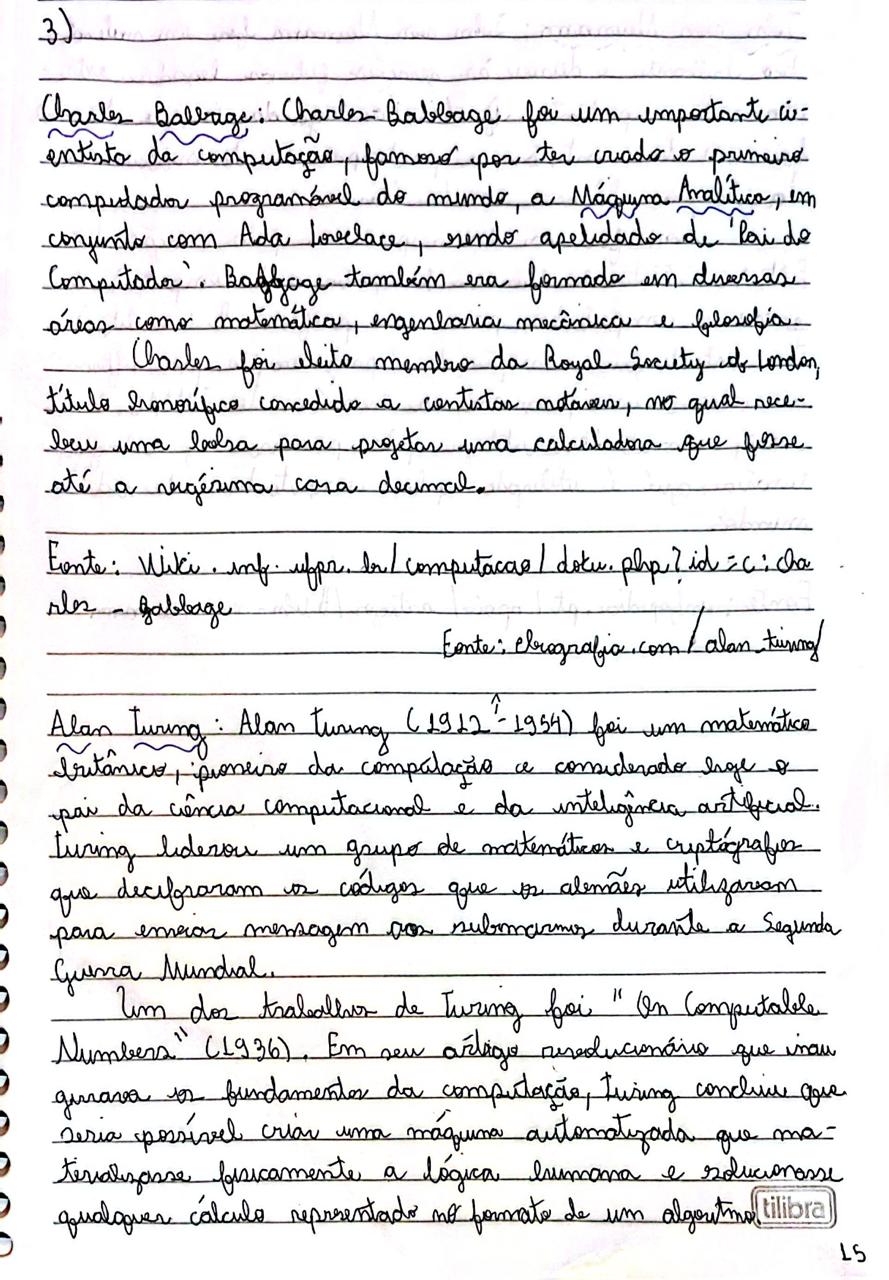 3)
Charles Babbage: Charles Babbage foi um importante ci-
entista da computação, famoso por ter criado o primeiro
computador programável do mundo, a Máquina Analítica, em
conjunto com Ada Lovelace, sendo apelidado de 'Pai do
Computador'. Babbage também era formado em diversas
áreas como matemática, engenharia mecânica e filosofia
Charles foi eleito membro da Royal Society of London,
título honorífico concedido a contistas notáveis, no qual rece-
beu uma bolsa para projetar uma calculadora que fosse
até a vigésima casa decimal.
Fonte: Wiki.inf.ufpr.br/computacao/doku.php?id=c:cha
rles-babbage
Fonte: ebiografia.com/alan_turing/
Alan Turing: Alan Turing (1912-1954) foi um matemático
britânico, pioneiro da computação e considerado hoje o
pai da ciência computacional e da inteligência artificial.
Turing liderou um grupo de matemáticos e criptógrafos
que decifraram os códigos que os alemães utilizavam
para enviar mensagem aos submarinos durante a Segunda
Guerra Mundial.
Um dos trabalhos de Turing foi "On Computable
Numbers" (1936). Em seu artigo revolucionário que inau
gurava os fundamentos da computação, Turing concluiu que
seria possível criar uma máquina automatizada que ma-
terializasse fisicamente a lógica humana e solucionasse
qualquer cálculo representado no formato de um algoritmo.
tilibra
15